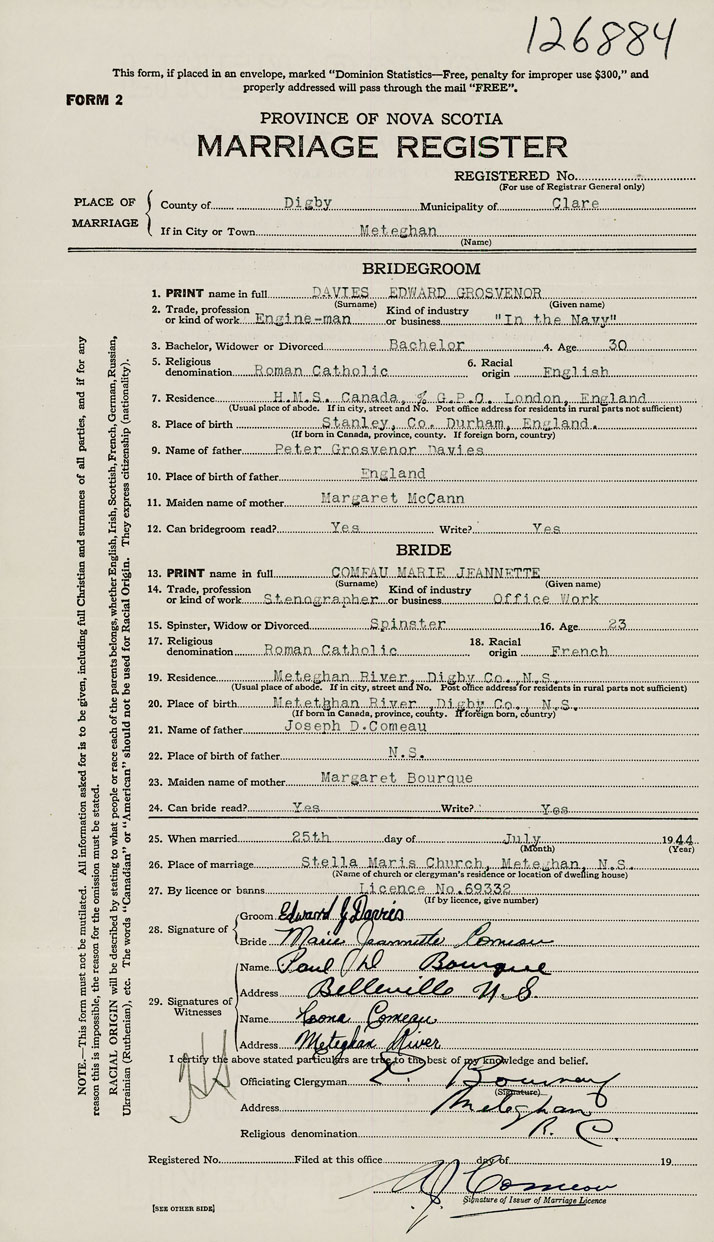 126884
This form, if placed in an envelope, marked “Dominion Statistics—Free, penalty for improper use $300,” and
properly addressed will pass through the mail “FREE”.
FORM 2
PROVINCE OF NOVA SCOTIA
MARRIAGE REGISTER
REGISTERED No.
(For use of Registrar General only)
PLACE OF MARRIAGE
County of Digby Municipality of Clare
If in City or Town Meteghan
(Name)
BRIDEGROOM
1. PRINT name in full DAVIES EDWARD GROSVENOR
(Surname) (Given name)
2. Trade, profession or kind of work Engine-man Kind of industry or business "In the Navy"
3. Bachelor, Widower or Divorced Bachelor 4. Age 30
5. Religious denomination Roman Catholic 6. Racial origin English
7. Residence H.M.S. Canada, % G.P.O. London, England
(Usual place of abode. If in city, street and No. Post office address for residents in rural parts not sufficient)
8. Place of birth Stanley, Co. Durham, England.
(If born in Canada, province, county. If foreign born, country)
9. Name of father Peter Grosvenor Davies
10. Place of birth of father England
11. Maiden name of mother Margaret McCann
12. Can bridegroom read? Yes Write? Yes
BRIDE
13. PRINT name in full COMEAU MARIE JEANNETTE
(Surname) (Given name)
14. Trade, profession or kind of work Stenographer Kind of industry or business Office Work
15. Spinster, Widow or Divorced Spinster 16. Age 23
17. Religious denomination Roman Catholic 18. Racial origin French
19. Residence Meteghan River, Digby Co., N.S.
(Usual place of abode. If in city, street and No. Post office address for residents in rural parts not sufficient)
20. Place of birth Metethhan River, Digby Co., N.S.
(If born in Canada, province, county. If foreign born, country)
21. Name of father Joseph D. Comeau
22. Place of birth of father N.S.
23. Maiden name of mother Margaret Bourque
24. Can bride read? Yes Write? Yes
25. When married 25th day of July 1944
(Month) (Year)
26. Place of marriage Stella Maris Church, Meteghan, N.S.
(Name of church or clergyman's residence or location of dwelling house)
27. By licence or banns Licence No.69332
(If by licence, give number)
28. Signature of
Groom Edward G Davies
Bride Marie Jeannette Comeau
29. Signatures of Witnesses
Name Paul D Bourque
Address Belleville N.S.
Name Leona Comeau
Address Meteghan River
I certify the above stated particulars are true to the best of my knowledge and belief.
Officiating Clergyman
(Signature)
Address Meteghan
Religious denomination R. C.
Registered No. Filed at this office day of 19
Comeau
Signature of Issuer of Marriage Licence
[SEE OTHER SIDE]
NOTE.—This form must not be mutilated. All information asked for is to be given, including full Christian and surnames of all parties, and if for any
reason this is impossible, the reason for the omission must be stated.
RACIAL ORIGIN will be described by stating to what people or race each of the parents belongs, whether English, Irish, Scottish, French, German, Russian,
Ukrainian (Ruthenian), etc. The words “Canadian” or “American” should not be used for Racial Origin. They express citizenship (nationality).